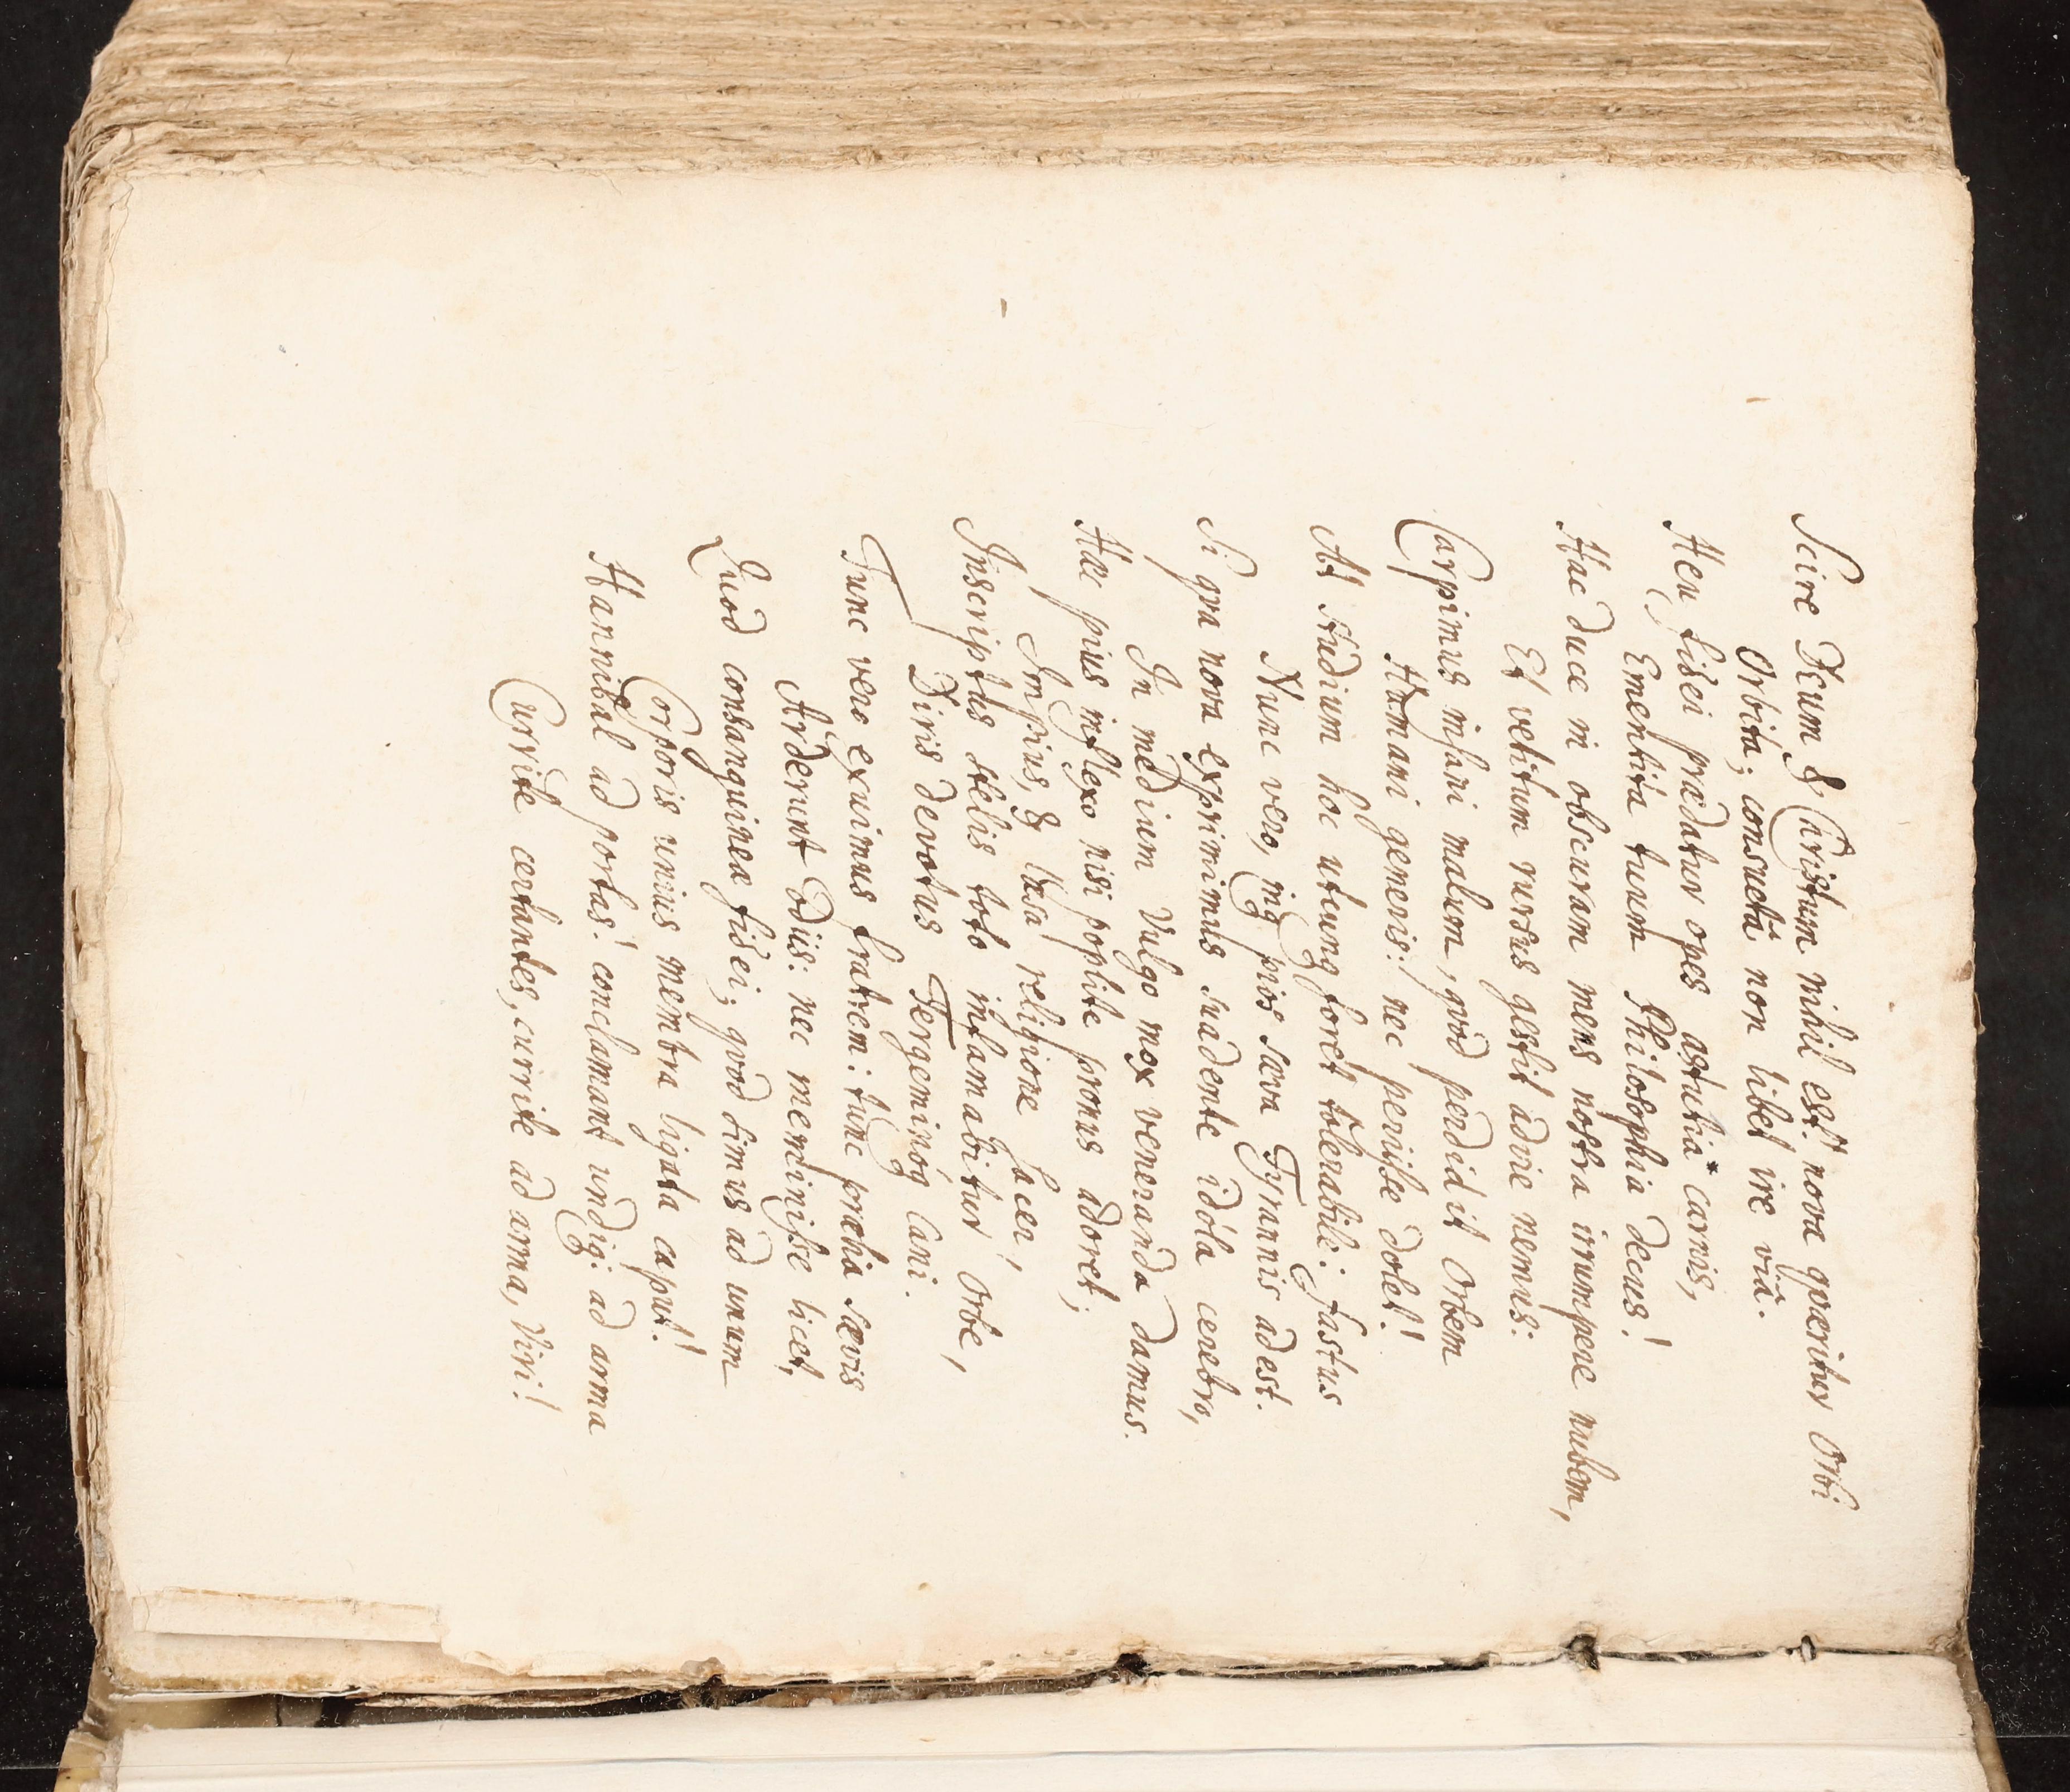 Scire Deum & Christum nihil est: nova qværitur Orbi
Orbita; consuetâ non libet ire viâ.
Heu fidei prædatur opes astutia carnis,
Ementita tuum Philosophia decus!
Hac duce in obscuram mens nostra irrumpere nubem,
Et vetitum rursus gestit adire nemus:
Carpimus insani malum, qvod perdidit Orbem
Humani generis: nec periisse dolet!
At studium hoc utcunq foret tolerabile: fastus
Nunc vero, inq pios sæva Tyrannis adest.
Si qva nova exprimimus suadente idóla cerebro,
In medium Vulgo mox veneranda damus.
Hæc pius inflexo nisi poplite pronus adoret,
Impius, & læsa religione sacer,
Inscriptus stelis toto infamabitur Orbe,
Diris devotus Tergeminóq Cani.
Tunc vero exuimus fratrem: tunc prælia sævis
Arderunt odiis: nec meminisse licet,
Quod consangvinea fidei; qvod simus ad unum
Corporis unius membra ligata caput!
Hannibal ad portas! conclamant undiq: ad arma
Currite certantes, currite ad arma, Viri!